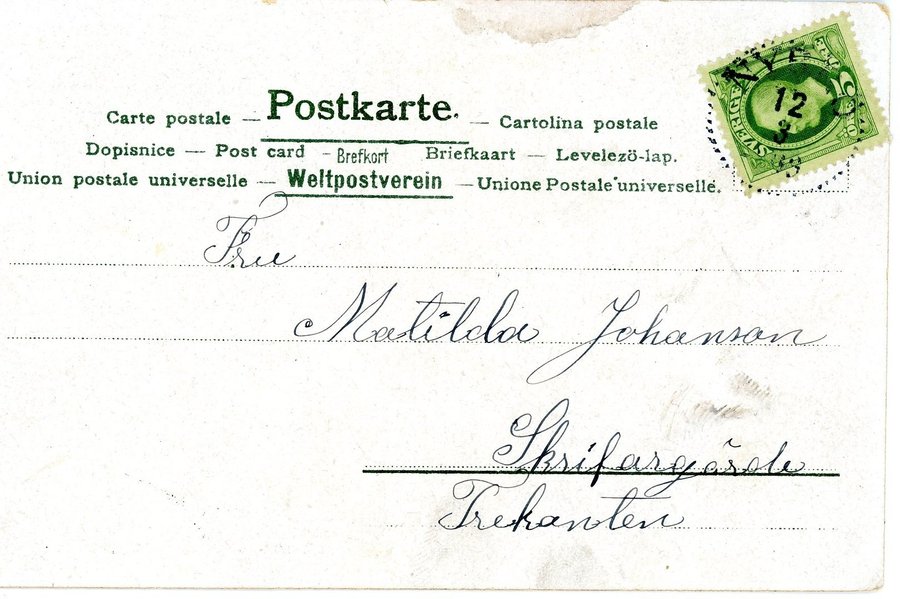 Carte postale — Postkarte. — Cartolina postale
Dopisnice — Post card - Brefkort Briefkaart — Levelezö-lap.
Union postale universelle — Weltpostverein — Unione Postale universelle.
Fru
Matilda Johanson
Skrifargärde
Trekanten
SVERIGE
12
3